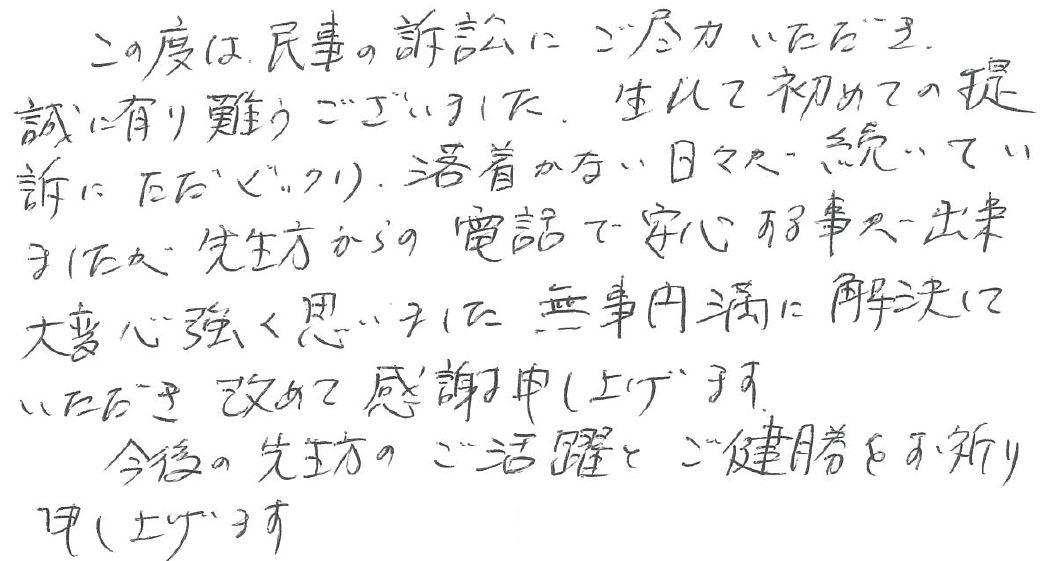 この度は、民事の訴訟にご尽力いただき、
誠に有り難うございました。生れて初めての提
訴にただびっくり、落着かない日々が続いてい
ましたが先生方からの電話で安心する事が出来
大変心強く思いました無事円満に解決して
いただき改めて感謝申し上げます。
今後の先生方のご活躍とご健勝をお祈り
申し上げます